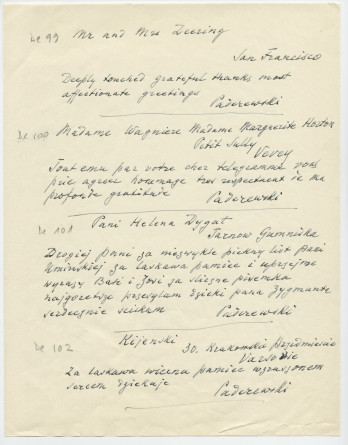 de 99 Mr and Mrs Deering
San Francisco
Deeply touched grateful thanks most
affectionate greetings
Paderewski
de 100 Madame Wagniere Madame Margerite Horton
Petit Sully
Vevey
Tout emu par votre cher telegramme vous
prie agreer hommage tres respectueux de ma
profonde gratitude
Paderewski
de 101 Pani Helena Dygat
Tarnow Gumniska
Drogiej Pani za niezwykle piekny list Pani
Uminskiej za laskawa pamiec i uprzejme
wyrazy Basi i Zosi za sliczne pisemka
najgoretsze przesylam dzieki pana Zygmunta
serdecznie sciskam
Paderewski
de 102 Kijenski
30. Krakowskie Przedmiescie
Varsovie
Za laskawa wierna pamiec wzruszonem
sercem dziekuje
Paderewski